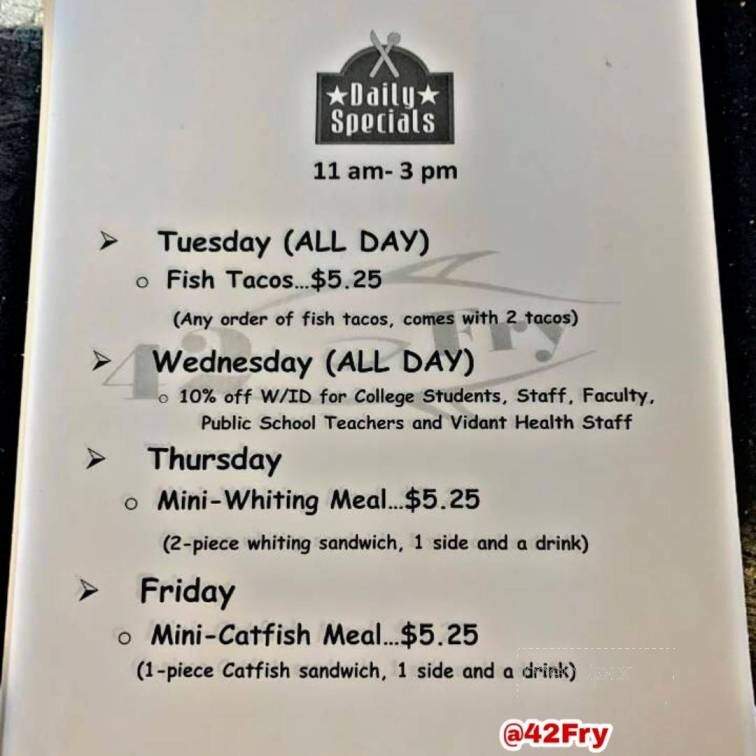 ★Daily★
Specials
11 am- 3 pm
➢ Tuesday (ALL DAY)
o Fish Tacos...$5.25
(Any order of fish tacos, comes with 2 tacos)
42 Fry
➢ Wednesday (ALL DAY)
o 10% off W/ID for College Students, Staff, Faculty,
Public School Teachers and Vidant Health Staff
➢ Thursday
o Mini-Whiting Meal...$5.25
(2-piece whiting sandwich, 1 side and a drink)
➢ Friday
o Mini-Catfish Meal...$5.25
(1-piece Catfish sandwich, 1 side and a drink)
@42Fry